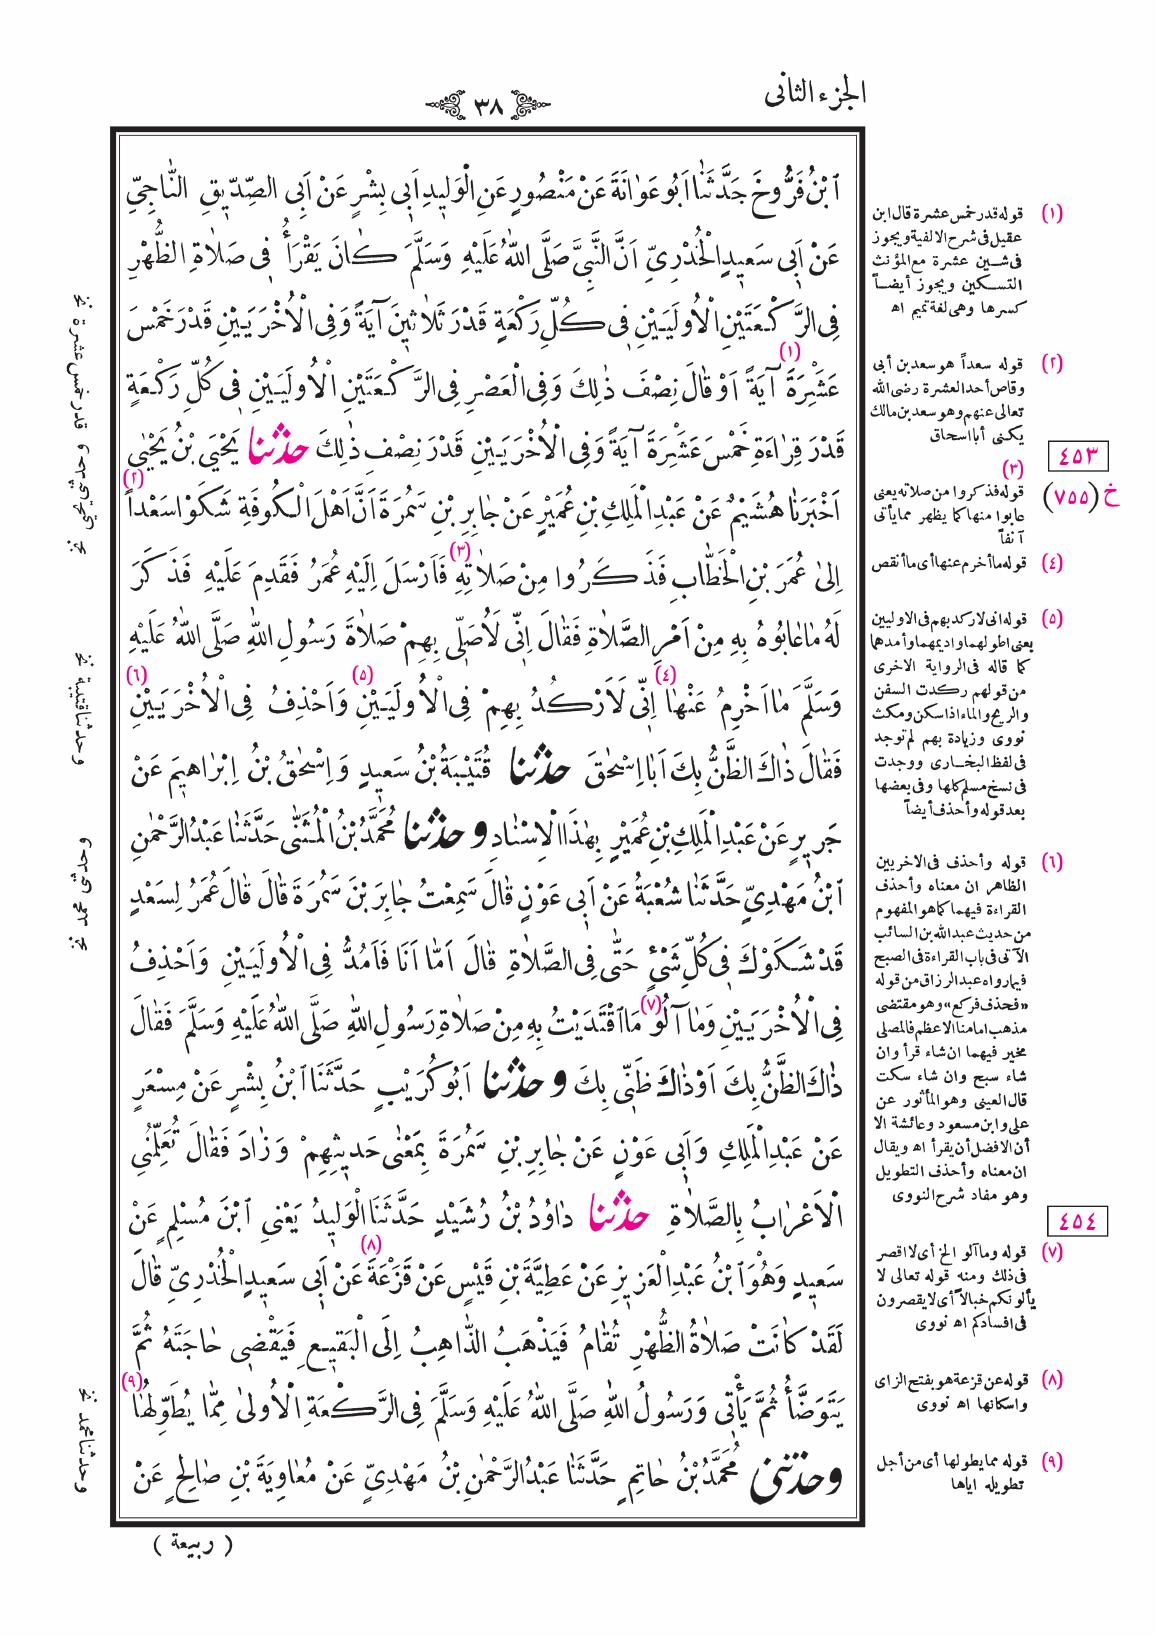 الجزء الثانى
٣٨
اَبْنُ فَرُّوخَ حَدَّثَنَا اَبُو عَوَانَةَ عَنْ مَنْصُورٍ عَنِ الْوَلِيدِ اَبِى بِشْرٍ عَنْ اَبِى الصِّدِّيقِ النَّاجِىِّ
عَنْ اَبِى سَعِيدٍ الْخُدْرِىِّ اَنَّ النَّبِىَّ صَلَّى اللهُ عَلَيْهِ وَسَلَّمَ كَانَ يَقْرَأُ فِى صَلَاةِ الظُّهْرِ
فِى الرَّكْعَتَيْنِ الْاُولَيَيْنِ فِى كُلِّ رَكْعَةٍ قَدْرَ ثَلَاثِينَ آيَةً وَفِى الْاُخْرَيَيْنِ قَدْرَ خَمْسَ
عَشْرَةَ آيَةً (١) اَوْ قَالَ نِصْفَ ذٰلِكَ وَفِى الْعَصْرِ فِى الرَّكْعَتَيْنِ الْاُولَيَيْنِ فِى كُلِّ رَكْعَةٍ
قَدْرَ قِرَاءَةِ خَمْسَ عَشْرَةَ آيَةً وَفِى الْاُخْرَيَيْنِ قَدْرَ نِصْفِ ذٰلِكَ حدثنا يَحْيَى بْنُ يَحْيٰى
اَخْبَرَنَا هُشَيْمٌ عَنْ عَبْدِ الْمَلِكِ بْنِ عُمَيْرٍ عَنْ جَابِرِ بْنِ سَمُرَةَ اَنَّ اَهْلَ الْكُوفَةِ شَكَوْا سَعْداً (٢)
اِلىٰ عُمَرَ بْنِ الْخَطَّابِ فَذَكَرُوا مِنْ صَلَاتِهِ (٣) فَاَرْسَلَ اِلَيْهِ عُمَرُ فَقَدِمَ عَلَيْهِ فَذَكَرَ
لَهُ مَا عَابُوهُ بِهِ مِنْ اَمْرِ الصَّلَاةِ فَقَالَ اِنِّى لَاُصَلِّى بِهِمْ صَلَاةَ رَسُولِ اللهِ صَلَّى اللهُ عَلَيْهِ
وَسَلَّمَ مَا اَخْرِمُ عَنْهَا (٤) اِنِّى لَاَرْكُدُ بِهِمْ فِى الْاُولَيَيْنِ (٥) وَاَحْذِفُ فِى الْاُخْرَيَيْنِ (٦)
فَقَالَ ذَاكَ الظَّنُّ بِكَ اَبَا اِسْحٰقَ حدثنا قُتَيْبَةُ بْنُ سَعِيدٍ وَاِسْحٰقُ بْنُ اِبْرَاهِيمَ عَنْ
جَرِيرٍ عَنْ عَبْدِ الْمَلِكِ بْنِ عُمَيْرٍ بِهٰذَا الْاِسْنَادِ و حدثنا مُحَمَّدُ بْنُ الْمُثَنّٰى حَدَّثَنَا عَبْدُ الرَّحْمٰنِ
اَبْنُ مَهْدِىٍّ حَدَّثَنَا شُعْبَةُ عَنْ اَبِى عَوْنٍ قَالَ سَمِعْتُ جَابِرَ بْنَ سَمُرَةَ قَالَ قَالَ عُمَرُ لِسَعْدٍ
قَدْ شَكَوْكَ فِى كُلِّ شَىْءٍ حَتّٰى فِى الصَّلَاةِ قَالَ اَمَّا اَنَا فَاَمُدُّ فِى الْاُولَيَيْنِ وَاَحْذِفُ
فِى الْاُخْرَيَيْنِ وَمَا آلُو (٧) مَا اقْتَدَيْتُ بِهِ مِنْ صَلَاةِ رَسُولِ اللهِ صَلَّى اللهُ عَلَيْهِ وَسَلَّمَ فَقَالَ
ذَاكَ الظَّنُّ بِكَ اَوْ ذَاكَ ظَنِّى بِكَ و حدثنا اَبُو كُرَيْبٍ حَدَّثَنَا ابْنُ بِشْرٍ عَنْ مِسْعَرٍ
عَنْ عَبْدِ الْمَلِكِ وَاَبِى عَوْنٍ عَنْ جَابِرِ بْنِ سَمُرَةَ بِمَعْنٰى حَدِيثِهِمْ وَزَادَ فَقَالَ تُعَلِّمُنِى
الْاَعْرَابُ بِالصَّلَاةِ حدثنا دَاوُدُ بْنُ رُشَيْدٍ حَدَّثَنَا الْوَلِيدُ يَعْنِى ابْنَ مُسْلِمٍ عَنْ
سَعِيدٍ وَهُوَ ابْنُ عَبْدِ الْعَزِيزِ عَنْ عَطِيَّةَ بْنِ قَيْسٍ عَنْ قَزْعَةَ (٨) عَنْ اَبِى سَعِيدٍ الْخُدْرِىِّ قَالَ
لَقَدْ كَانَتْ صَلَاةُ الظُّهْرِ تُقَامُ فَيَذْهَبُ الذَّاهِبُ اِلَى الْبَقِيعِ فَيَقْضِى حَاجَتَهُ ثُمَّ
يَتَوَضَّأُ ثُمَّ يَأْتِى وَرَسُولُ اللهِ صَلَّى اللهُ عَلَيْهِ وَسَلَّمَ فِى الرَّكْعَةِ الْاُولىٰ مِمَّا يُطَوِّلُهَا (٩)
و حدثنى مُحَمَّدُ بْنُ حَاتِمٍ حَدَّثَنَا عَبْدُ الرَّحْمٰنِ بْنُ مَهْدِىٍّ عَنْ مُعَاوِيَةَ بْنِ صَالِحٍ عَنْ
( ربيعة )
(١) قوله قدر خمس عشرة قال ابن
عقيل فى شرح الالفية ويجوز
فى شين عشرة مع المؤنث
التسكين ويجوز أيضاً
كسرها وهى لغة تميم اه
(٢) قوله سعداً هو سعد بن أبى
وقاص أحد العشرة رضى الله
تعالى عنهم وهو سعد بن مالك
يكنى أبا اسحاق
٤٥٣
خ (٧٥٥)
(٣)
قوله فذكروا من صلاته يعنى
عابوا منها كما يظهر مما يأتى
آنفاً
(٤) قوله ما أخرم عنها أى ما أنقص
(٥) قوله انى لاركد بهم فى الاوليين
يعنى اطولهما واديمهما وأمدهما
كما قاله فى الرواية الاخرى
من قولهم ركدت السفن
والريح والماء اذا سكن ومكث
نووى وزيادة بهم لم توجد
فى لفظ البخارى ووجدت
فى نسخ مسلم كلها وفى بعضها
بعد قوله وأحذف أيضاً
(٦) قوله وأحذف فى الاخريين
الظاهر ان معناه وأحذف
القراءة فيهما كما هو المفهوم
من حديث عبد الله بن السائب
الآتى فى باب القراءة فى الصبح
فيما رواه عبد الرزاق من قوله
«فحذف فركع» وهو مقتضى
مذهب امامنا الاعظم فالمصلى
مخير فيهما ان شاء قرأ وان
شاء سبح وان شاء سكت
قال العينى وهو المأثور عن
على وابن مسعود وعائشة الا
أن الافضل أن يقرأ اه ويقال
ان معناه وأحذف التطويل
وهو مفاد شرح النووى
٤٥٤
(٧) قوله وما آلو الخ أى لا اقصر
فى ذلك ومنه قوله تعالى لا
يألونكم خبالاً أى لا يقصرون
فى افسادكم اه نووى
(٨) قوله عن قزعة هو بفتح الزاى
واسكانها اه نووى
(٩) قوله مما يطولها أى من أجل
تطويله اياها
قدر خمس عشرة نخ
وحدثنا قتيبة نخ
وحدثنا محمد نخ